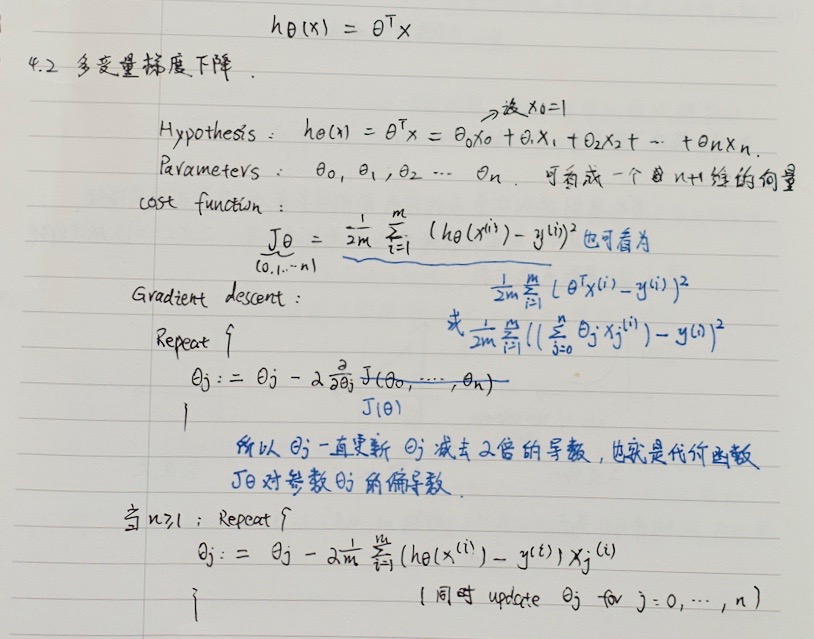 hθ(x) = θᵀx
4.2 多变量梯度下降.
→设x₀=1
Hypothesis: hθ(x) = θᵀx = θ₀x₀ + θ₁x₁ + θ₂x₂ + … + θₙxₙ.
Parameters: θ₀, θ₁, θ₂ … θₙ. 可看成一个 n+1维的向量
cost function:
Jθ = 1/2m ∑ᵢ₌₁ᵐ (hθ(x⁽ⁱ⁾) − y⁽ⁱ⁾)² 也可看为
(0,1…n)
1/2m ∑ᵢ₌₁ᵐ (θᵀx⁽ⁱ⁾ − y⁽ⁱ⁾)²
Gradient descent:
或 1/2m ∑ᵢ₌₁ᵐ ((∑ⱼ₌₀ⁿ θⱼxⱼ⁽ⁱ⁾) − y⁽ⁱ⁾)²
Repeat {
θⱼ := θⱼ − α ∂/∂θⱼ J(θ₀, …, θₙ)
J(θ)
}
所以 θⱼ 一直更新 θⱼ 减去 α倍的导数, 也就是代价函数
Jθ 对参数 θⱼ 的偏导数.
当n≥1; Repeat {
θⱼ := θⱼ − α 1/m ∑ᵢ₌₁ᵐ (hθ(x⁽ⁱ⁾) − y⁽ⁱ⁾) xⱼ⁽ⁱ⁾
(同时 update θⱼ for j=0, …, n)
}